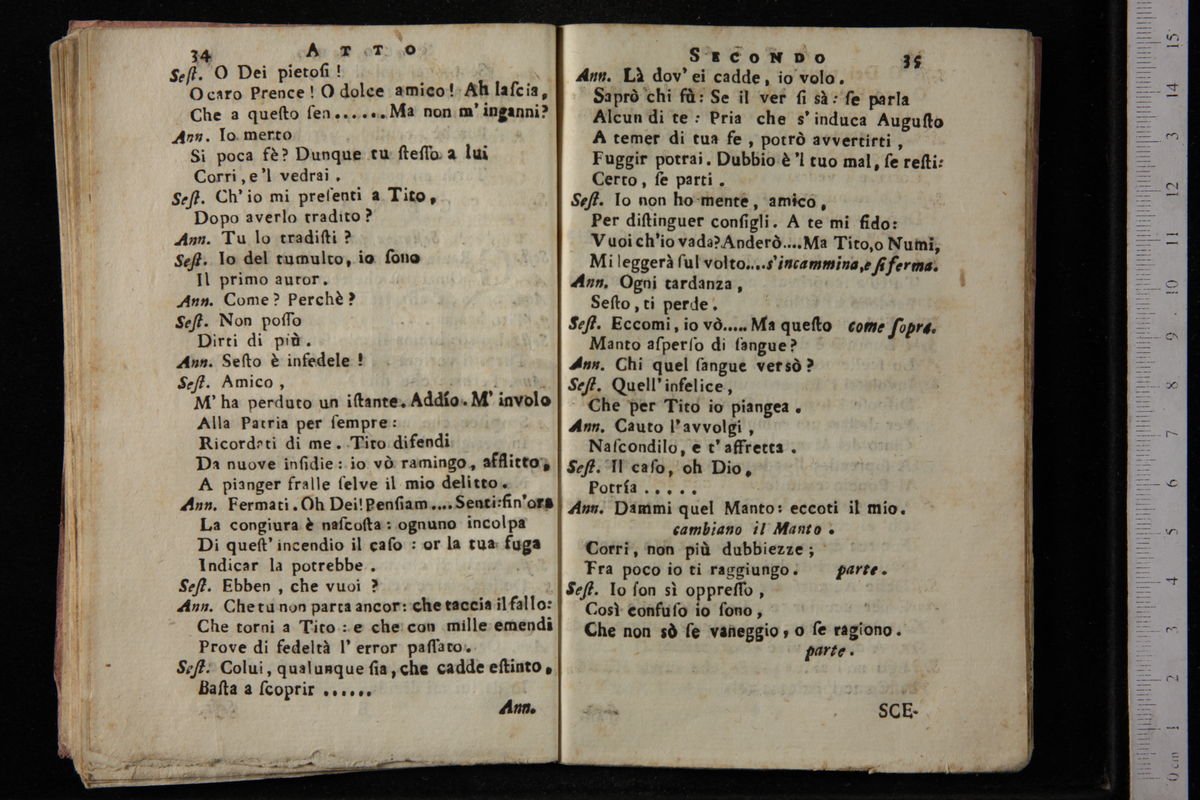 34 ATTO
Seſt. O Dei pietoſi !
O caro Prence ! O dolce amico ! Ah laſcia,
Che a queſto ſen......Ma non m'inganni?
Ann. Io merto
Si poca fè? Dunque tu ſteſſo a lui
Corri, e 'l vedrai.
Seſt. Ch' io mi preſenti a Tito,
Dopo averlo tradito ?
Ann. Tu lo tradiſti ?
Seſt. Io del tumulto, io ſono
Il primo autor.
Ann. Come ? Perchè ?
Seſt. Non poſſo
Dirti di più.
Ann. Seſto è infedele !
Seſt. Amico,
M' ha perduto un iſtante. Addío. M' involo
Alla Patria per ſempre:
Ricordati di me. Tito difendi
Da nuove inſidie: io vò ramingo, afflitto,
A pianger fralle ſelve il mio delitto.
Ann. Fermati. Oh Dei! Penſiam.... Senti: ſin' ora
La congiura è naſcoſta: ognuno incolpa
Di queſt' incendio il caſo : or la tua fuga
Indicar la potrebbe.
Seſt. Ebben, che vuoi ?
Ann. Che tu non parta ancor: che taccia il fallo:
Che torni a Tito : e che con mille emendi
Prove di fedeltà l' error paſſato.
Seſt. Colui, qualunque ſia, che cadde eſtinto,
Baſta a ſcoprir ......
Ann.
SECONDO 35
Ann. Là dov' ei cadde, io volo.
Saprò chi fù: Se il ver ſi sà: ſe parla
Alcun di te : Pria che s' induca Auguſto
A temer di tua fe, potrò avvertirti,
Fuggir potrai. Dubbio è 'l tuo mal, ſe reſti:
Certo, ſe parti.
Seſt. Io non ho mente, amico,
Per diſtinguer conſigli. A te mi fido:
Vuoi ch'io vada? Anderò....Ma Tito, o Numi,
Mi leggerà ſul volto....s'incammina, e ſi ferma.
Ann. Ogni tardanza,
Seſto, ti perde.
Seſt. Eccomi, io vò..... Ma queſto come ſopra.
Manto aſperſo di ſangue?
Ann. Chi quel ſangue versò ?
Seſt. Quell' infelice,
Che per Tito io piangea.
Ann. Cauto l'avvolgi,
Naſcondilo, e t' affretta.
Seſt. Il caſo, oh Dio,
Potría .....
Ann. Dammi quel Manto: eccoti il mio.
cambiano il Manto.
Corri, non più dubbiezze ;
Fra poco io ti raggiungo. parte.
Seſt. Io ſon sì oppreſſo,
Così confuſo io ſono,
Che non sò ſe vaneggio, o ſe ragiono.
parte.
SCE-
0 cm 1 2 3 4 5 6 7 8 9 10 11 12 13 14 15